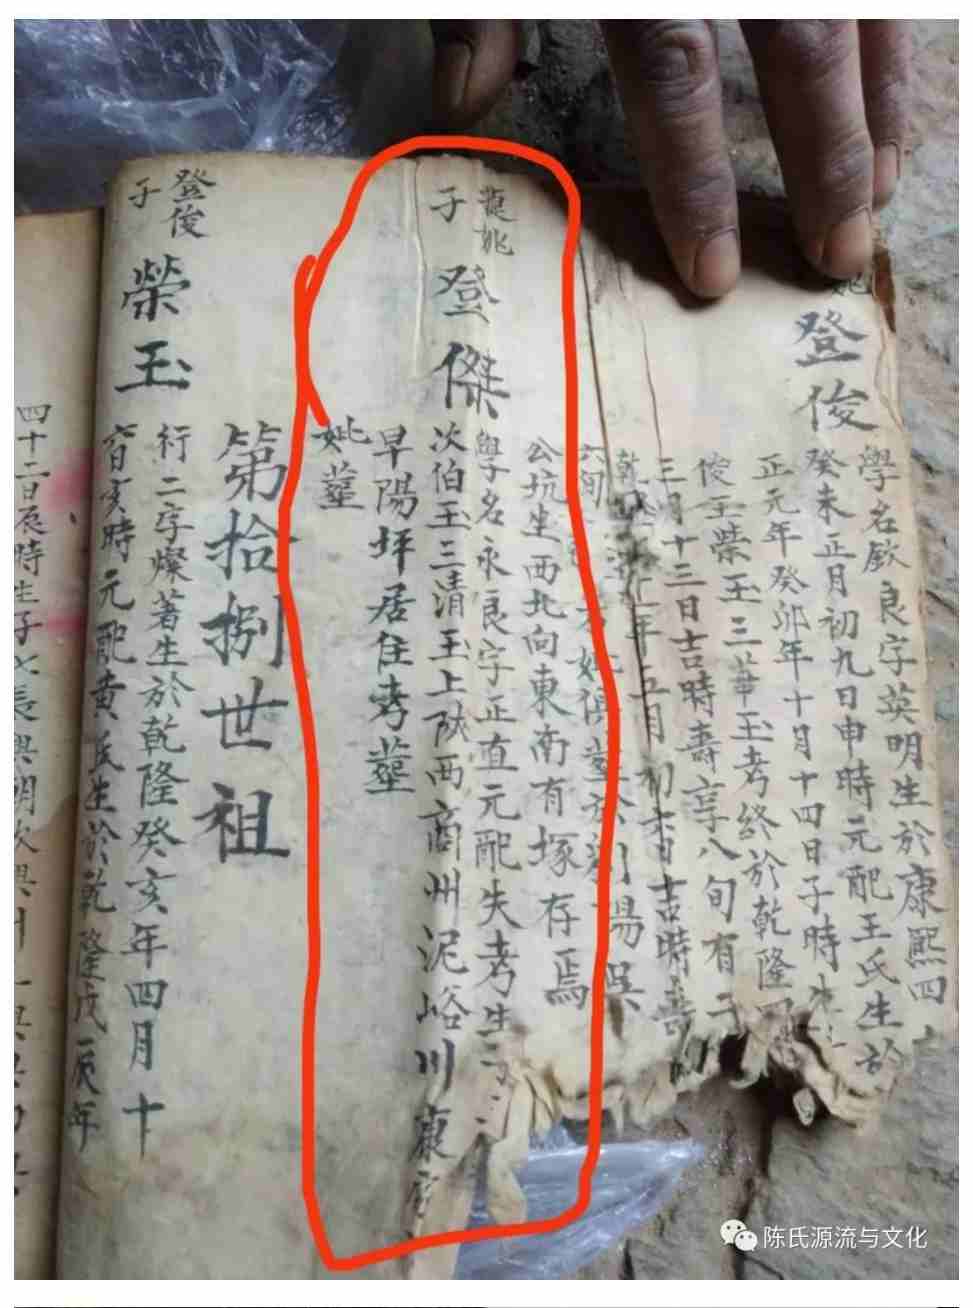 登俊
學名欽良字英明生於康熙四
癸未正月初九日申時元配王氏生於
正元年癸卯年十月十四日子時生
俊玉榮玉三華玉考終於乾隆四
三月十三日吉時壽享八旬有二
年五月初六日吉時壽
六旬
妣俱塟於瀏陽吳
公坑生西北向東南有塚存焉
龍兆
子
登傑
學名永良字正直元配失考生子
次伯玉三清玉上陝西商州泥峪川康家
早陽坪居住考塟
妣塟
第拾捌世祖
登俊
子
榮玉
行二字燦著生於乾隆癸亥年四月十
亥時元配黄氏生於乾隆戊辰年
四十二日辰時生子七長與明次與
陈氏源流与文化